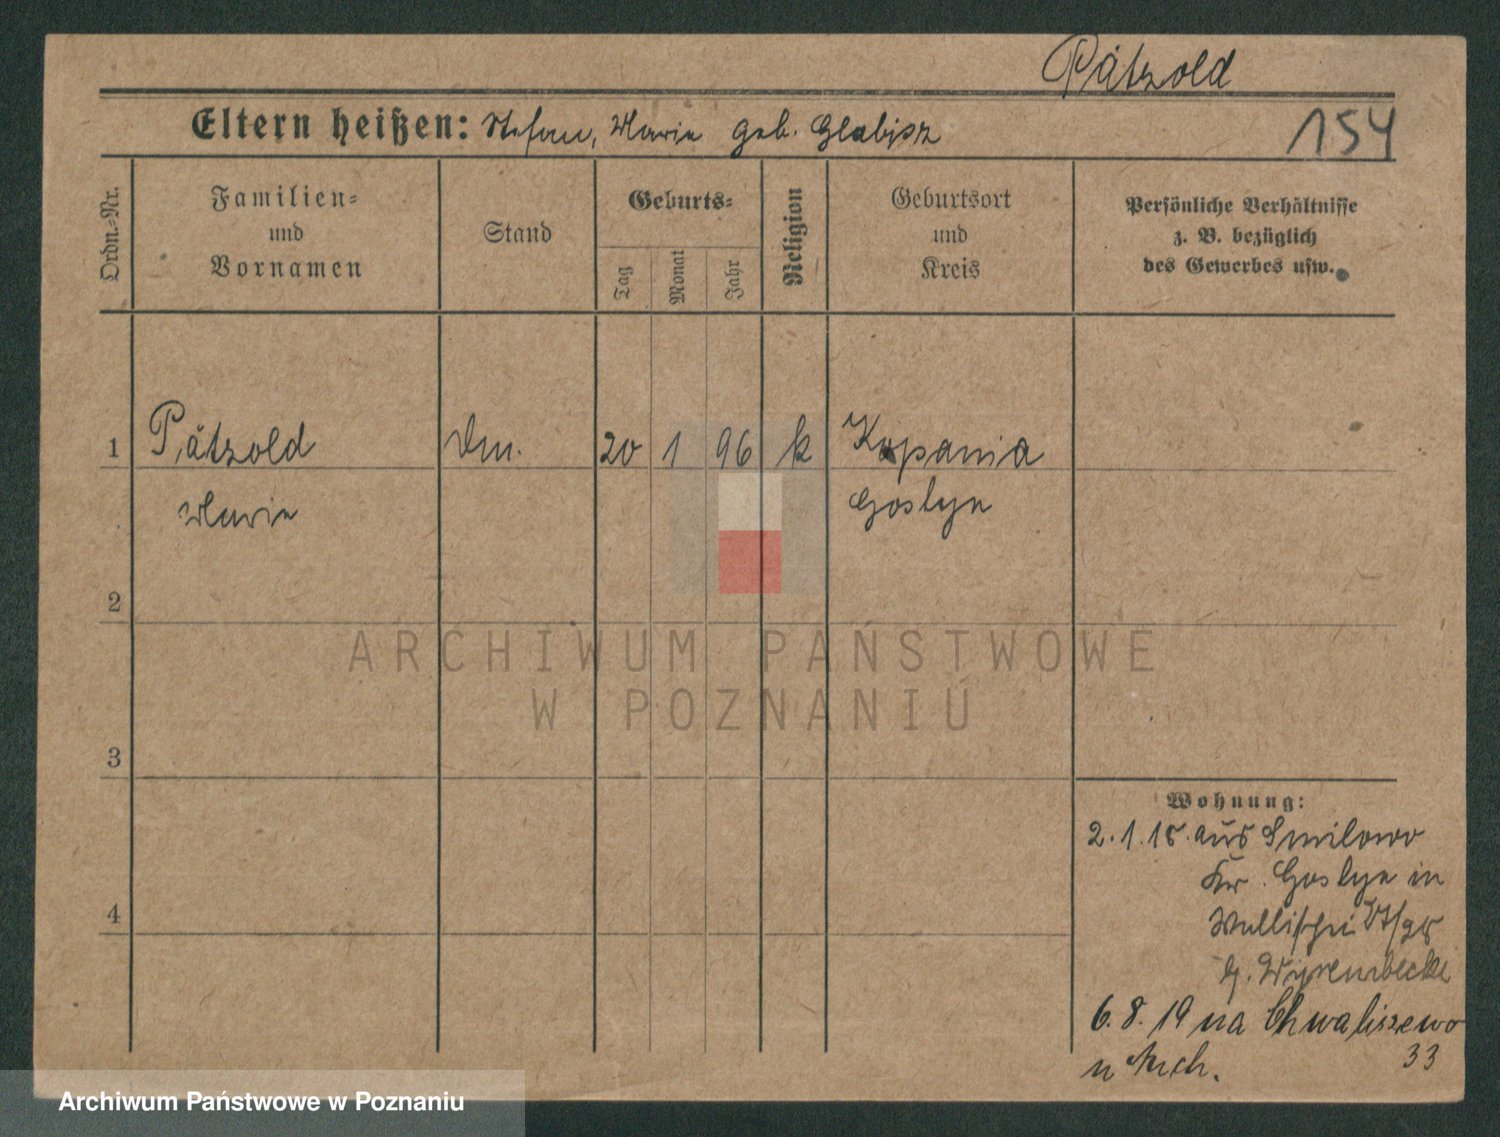 Pätzold
Eltern heißen: Stefan, Marie geb. Glabisz
154
Ordn.=Nr.
Familien=
und
Vornamen
Stand
Geburts=
Tag
Monat
Jahr
Religion
Geburtsort
und
Kreis
Persönliche Verhältnisse
z. B. bezüglich
des Gewerbes usw.
1 Pätzold Dm. 20 1 96 k Kopania
Marie Gostyn
2
3
4
Wohnung:
2.1.15. aus Smilowo
Kr. Gostyn in
Wallischei
b.
6.8.19 na Chwaliszewo
33
u
ARCHIWUM PAŃSTWOWE
W POZNANIU
Archiwum Państwowe w Poznaniu